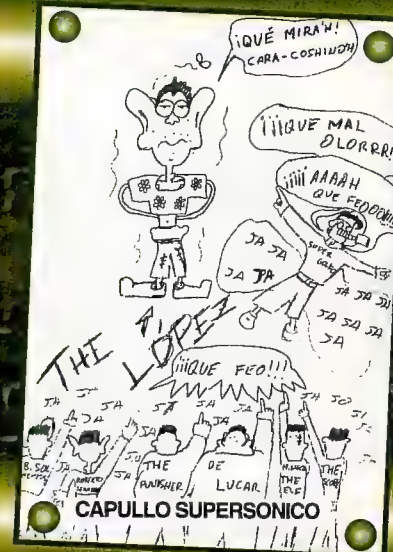 ¡QUÉ MIRA'H!
CARA-COSHINO'H
¡¡¡QUE MAL
OLORRR!
¡¡¡¡¡ AAAAH
QUE FEOOO
SUPER
JA JA
JA JA
JA JA JA
JA JA JA
JA
THE LOPEZ
¡¡¡QUE FEO!!!
JA JA JA JA JA JA
JA JA JA
THE
PUNISHER
DE
LUCAR
THE
ELF
THE
CAPULLO SUPERSONICO